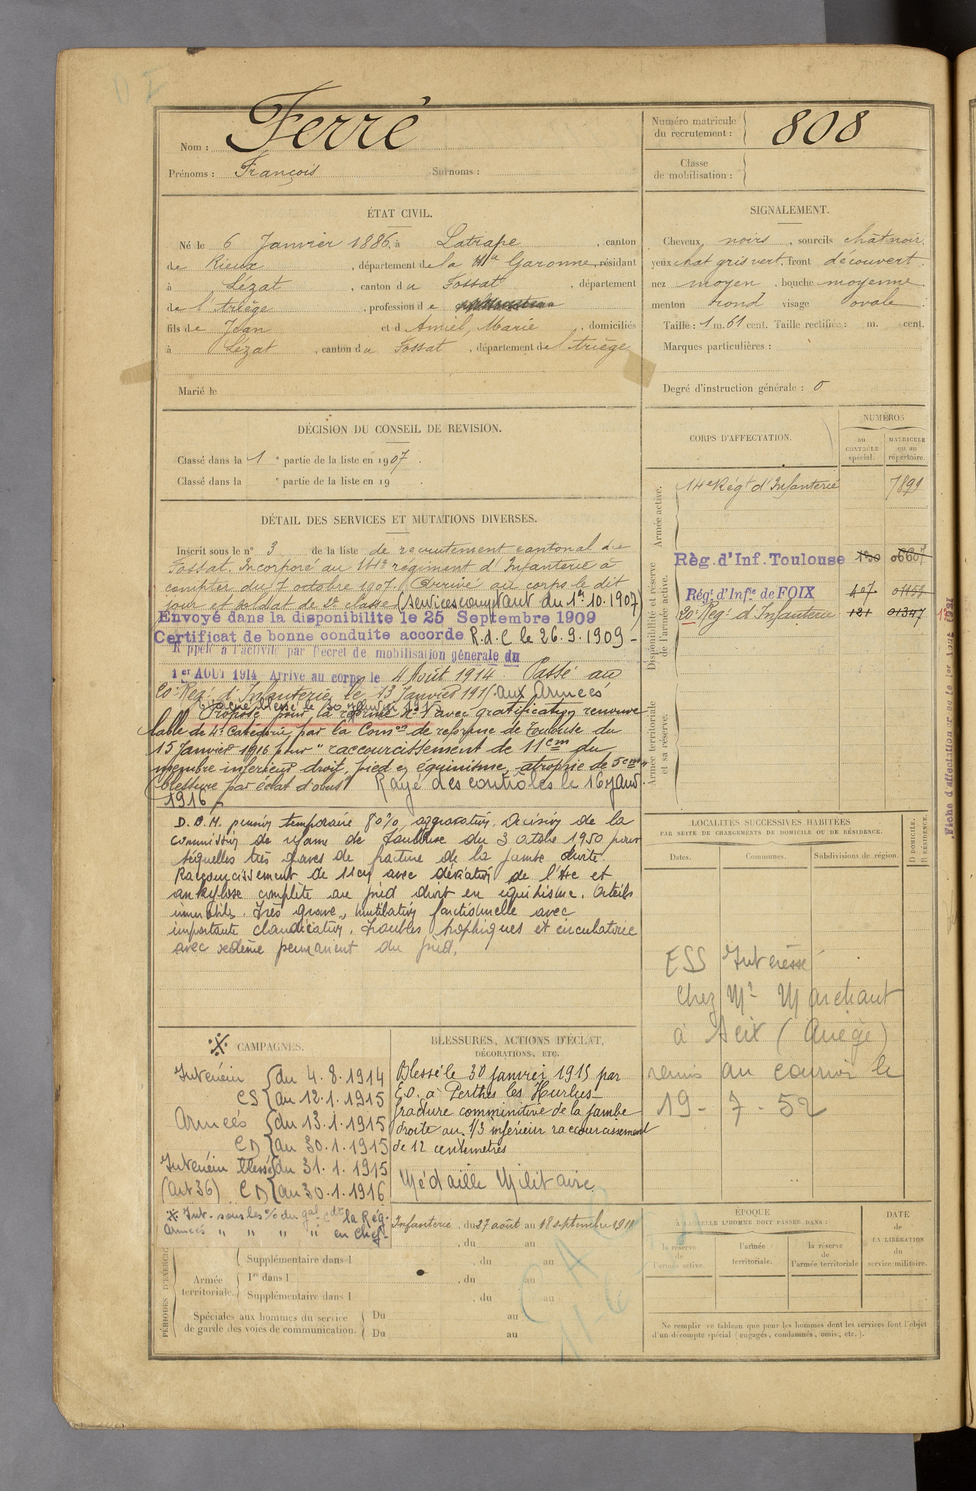 Nom : Ferré
Prénoms : François Surnoms :
Numéro matricule du recrutement : 808
Classe de mobilisation :
ÉTAT CIVIL.
Né le 6 Janvier 1886, à Latrape, canton
de Rieux, département de la Hte Garonne, résidant
à Lézat, canton du Fossat, département
de l'Ariège, profession de
fils de Jean et d'Amiel, Marie, domiciliés
à Lézat, canton du Fossat, département de l'Ariège
Marié le
SIGNALEMENT.
Cheveux noirs, sourcils chât noir.
yeux chat gris vert, front découvert.
nez moyen, bouche moyenne
menton rond visage ovale
Taille : 1 m. 61 cent. Taille rectifiée : m. cent.
Marques particulières :
Degré d'instruction générale : 0
DÉCISION DU CONSEIL DE REVISION.
Classé dans la 1e partie de la liste en 1907.
Classé dans la e partie de la liste en 19 .
DÉTAIL DES SERVICES ET MUTATIONS DIVERSES.
Inscrit sous le n° 3 de la liste de recrutement cantonal du
Fossat. Incorporé au 14e régiment d'Infanterie à
compter du 7 octobre 1907. Arrivé au corps le dit
jour et soldat de 2e classe (services comptant du 1er.10.1907)
Envoyé dans la disponibilité le 25 Septembre 1909
Certificat de bonne conduite accordé R.d.C le 26.9.1909 -
Rappelé à l'activité par Décret de mobilisation générale du
1er AOUT 1914 Arrivé au corps le 4 Août 1914 Passé au
20e Reg. d'Infanterie le 13 Janvier 1915 aux Armées
Proposé pour la réforme N°1 avec gratification renouve
lable de 4e Catégorie par la Comon de réforme de Toulouse du
15 janvier 1916 pour "raccourcissement de 11cm du
membre inférieur droit, pied en équinisme, atrophie de 5cm
(blessure par éclat d'obus) Rayé des contrôles le 16 janv
1916
D.O.M. pension temporaire 80% aggravation. Décision de la
commission de réforme de Toulouse du 3 octobre 1950 pour
séquelles très graves de fracture de la jambe droite.
Raccourcissement de 11cm avec déviation de l'axe et
ankylose complète du pied droit en équinisme. Orteils
immobiles. Très grave mutilation fonctionnelle avec
importante claudication, troubles trophiques et circulatoire
avec œdème permanent du pied.
CORPS D'AFFECTATION.
NUMÉROS
AU CONTRÔLE spécial.
MATRICULE ou au répertoire.
Armée active.
14e Régt d'Infanterie 7891
Disponibilité et réserve de l'armée active.
Règ. d'Inf. Toulouse
Régt d'Infie de FOIX
20e Regt d'Infanterie 121 01347
Armée territoriale et sa réserve.
LOCALITÉS SUCCESSIVES HABITÉES
PAR SUITE DE CHANGEMENTS DE DOMICILE OU DE RÉSIDENCE.
Dates. Communes. Subdivisions de région.
D. DOMICILE. R. RÉSIDENCE.
ESS Intéressé
chez Mr Marchant
à Seix (Ariège)
remis au courrier le
19 - 7 - 52
CAMPAGNES.
Intérieur du 4.8.1914
CS au 12.1.1915
Armées du 13.1.1915
CD au 30.1.1915
Intérieur blessé du 31.1.1915
(art 36) CD au 30.1.1916
Int. sous les o/ du gal cdt la Rég.
Armées " " " " en chef
BLESSURES, ACTIONS D'ÉCLAT,
DÉCORATIONS, ETC.
Blessé le 30 janvier 1915 par
E.O. à Perthes les Hurlus
fracture comminutive de la jambe
droite au 1/3 inférieur raccourcissement
de 12 centimètres
Médaille Militaire
Infanterie, du 27 août au 18 septembre 1911
, du au
PÉRIODES D'EXERCICES
Supplémentaire dans l , du au
Armée territoriale. 1re dans l , du au
Supplémentaire dans l , du au
Spéciales aux hommes du service
de garde des voies de communication. Du au
Du au
ÉPOQUE
À LAQUELLE L'HOMME DOIT PASSER DANS :
la réserve de l'armée active.
l'armée territoriale.
la réserve de l'armée territoriale
DATE de LA LIBÉRATION du service militaire.
Ne remplir ce tableau que pour les hommes dont les services font l'objet
d'un décompte spécial (engagés, condamnés, omis, etc.).